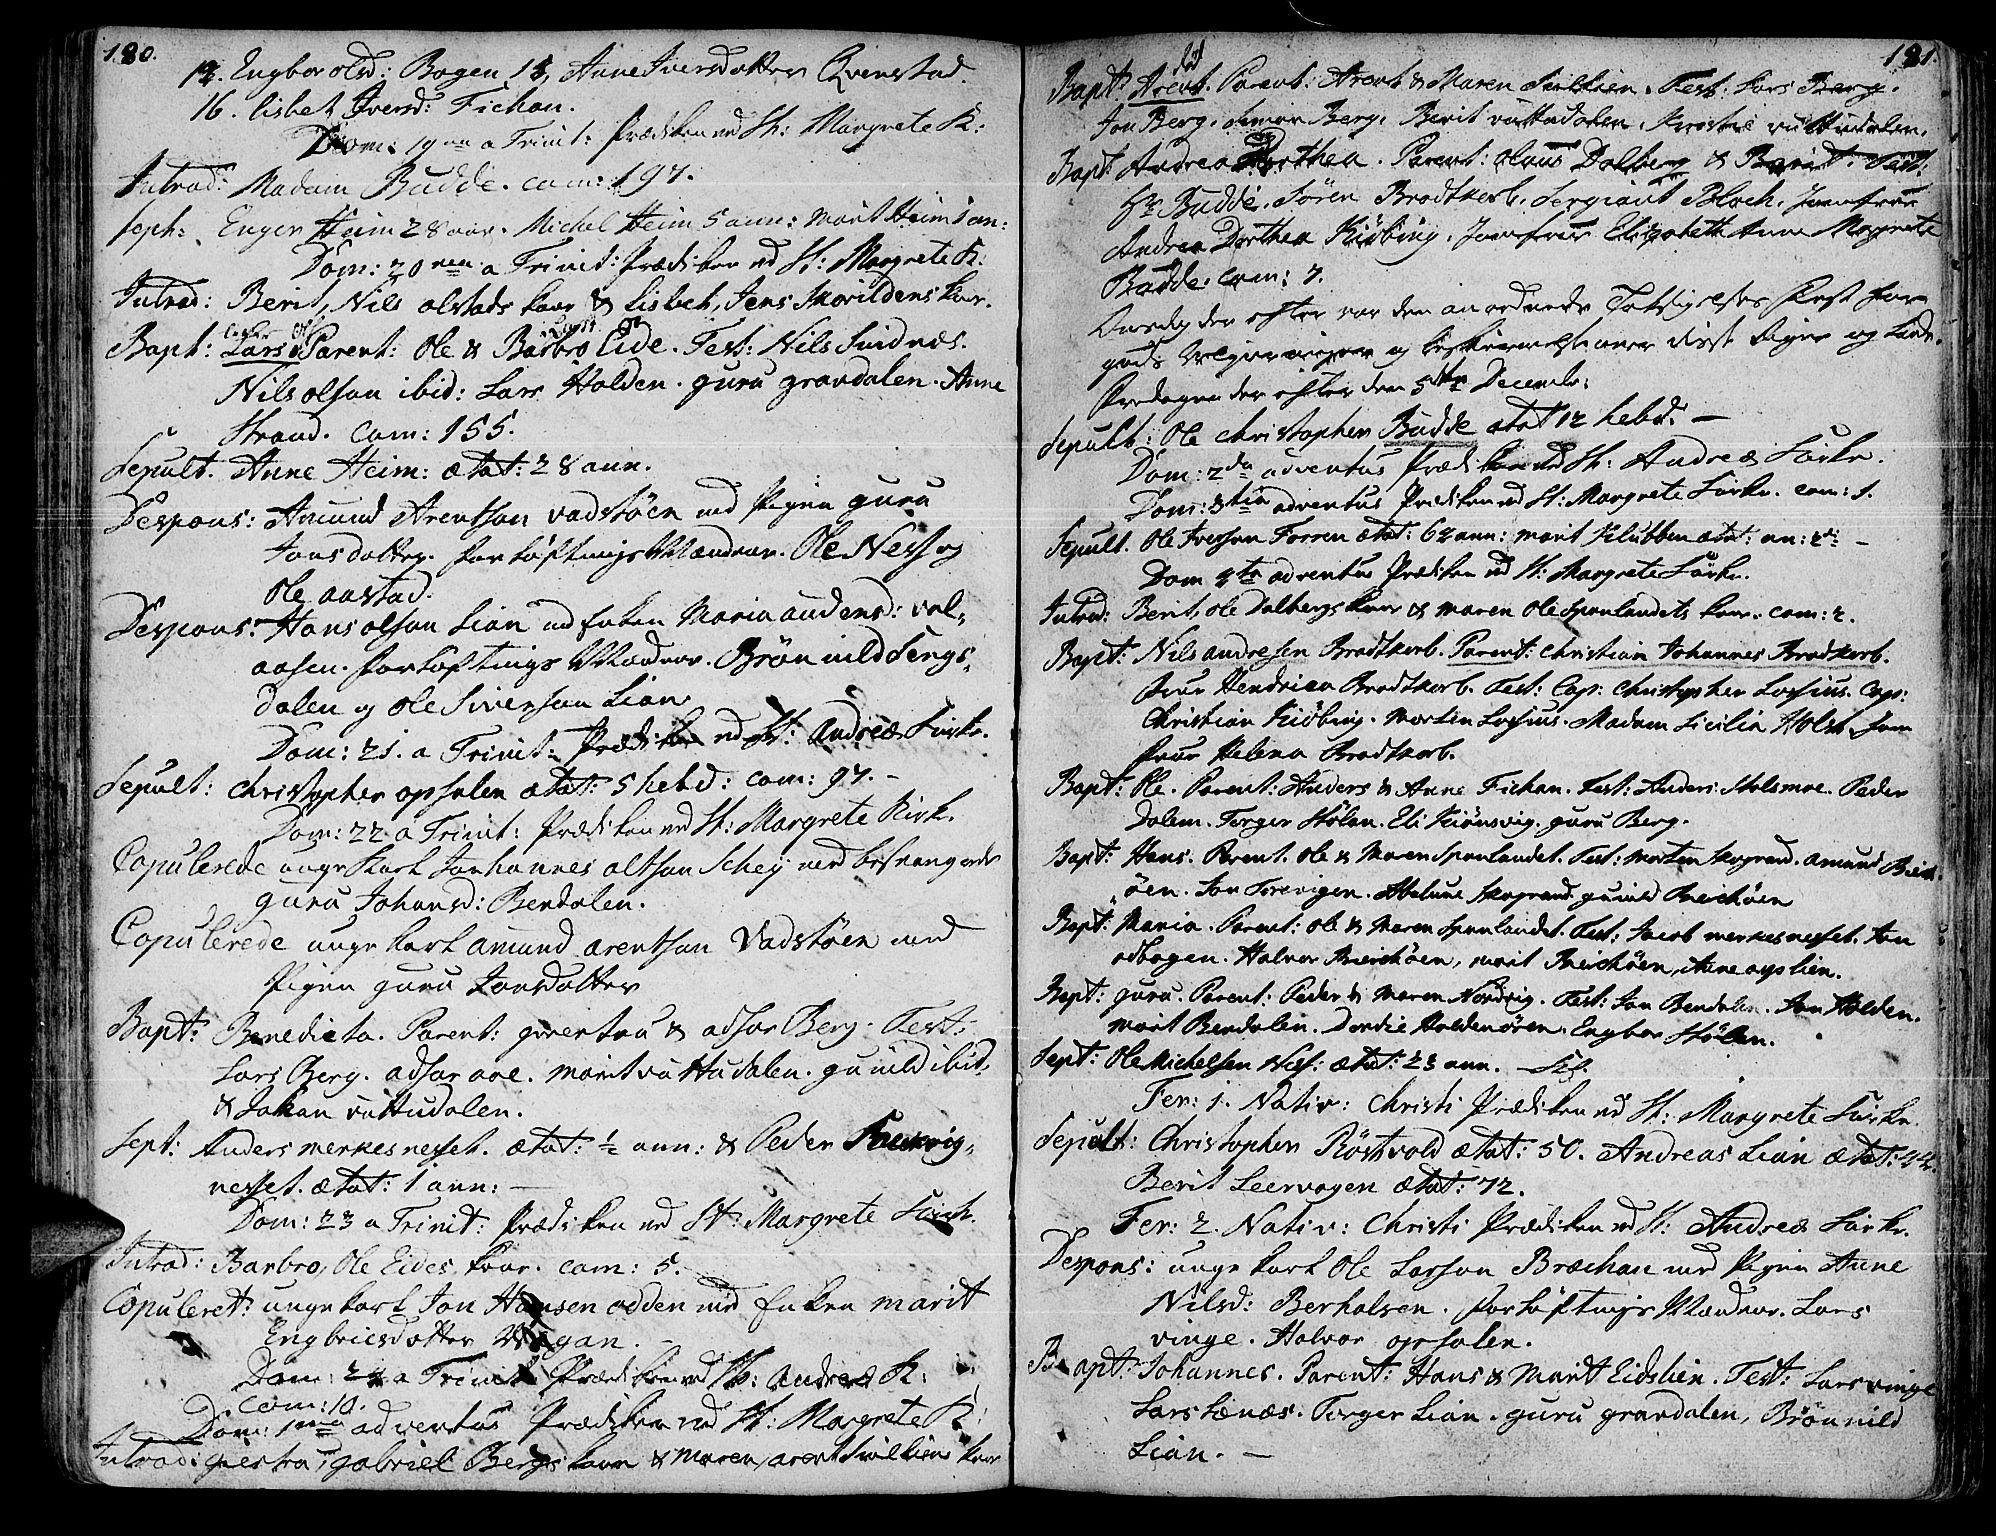 180.
12. Engbor olsd: Bogen 13, Anne Iversdotter Qvenstad.
16. lisbet Iversd: Fichan.
Dom: 19 a Trinit: Prædiken ved St: Margrete K:
Introd: Madam Budde. com: 197.
Seph: Enger Heim 28 aar. Michel Heim 5 ann: Marit Heim 1 an:
Dom: 20 a Trinit: Prædiken ved St: Margrete K:
Introd: Berit, Nils olstads kone & Lisbet, Jens Skorildens kone.
Bapt: Lars Parent: Ole & Barbro Eide. Test: Nils Snidnes.
Nils olson ibid: Lars Holden. guru grandalen. Anne
Strand. Com: 155.
Sepult. Anne Heim: ætat: 28 ann.
Despons: Amund Arentson vadstöen med Pigen guru
Jonsdotter. forlöftnings Mændene. Ole Ness og
Ole aastad.
Despons: Hans olson Lian med Enken Maria audensd: val-
aasen. forloftnings Mændene. Brönnild Sengs-
dalen og Ole Siverson Lian
Dom: 21. a Trinit: Prædiken ved St: Andreæ Kirke.
Sepult: Christopher opsalen ætat: 5 hebd: com: 97. -
Dom: 22 a Trinit: Prædiken ved St: Margrete Kirk.
Copulerede unge karl Johannes oltson Schey med besvangrede
guru Johansd: Bendalen.
Copulerede unge karl amund arentson Vadstöen med
Pigen guru Jonsdotter
Bapt: Benedicta. Parent: & adsar Berg: Test:
Lars Berg. adsar aae. marit vuttudalen. gunild ibid.
& Johan vuttudalen.
Sept: Anders merkesnesset. ætat: ½ ann: & Peder
nesset. ætat: 1 ann: -
Dom: 23 a Trinit: Prædiken ved St: Margrete Kirk.
Introd: Barbro, Ole Eides kone. com: 5.
Copuleret: unge karl Jon Hansen odden med Enken marit
Engbriesdotter Vaagan.
Dom: 24 a Trinit: Prædiken ved St: Andreæ K:
Com: 10.
Dom: 1 adventus Prædiken ved St: Margrete K:
Introd: giertru, gabriel Bergs kone & maren, arent Smiliens kone
181.
Bapt: Arent. Parent: Arent & Maren Smilien. Test: Lars Berg.
Jon Berg. Simon Berg. Berit vuttudalen. Kirstie vuttudalen.
Bapt: Andrea Dorthea. Parent: Claus Dalberg & Berit. Test:
Hr Budde. Sören Brodtkorb. Sergiant Bloch. Jomfrue
Andrea Dorthea Kiöbing. Jomfrue Elizabeth Anne Magrete
Budde. com: 7.
Onsdag der efter var den anordnede Taksigelses Fest for
guds velgierninger og beskiermelse over disse Riger og Lande.
Fredagen der efter den 5te Decembr:
Sepult: Ole Christopher Budde ætat 12 hebd. -
Dom: 2da adventus Prædiken ved St: Andreæ Kirke.
Dom: 3tia adventus Prædiken ved St: Margrete Kirke. com: 1.
Sepult. Ole Iverson Forren ætat: 62 ann: Marit Klubben ætat: an: -
Dom 4ta adventus Prædiken ved St: Margrete Kirke.
Introd: Berit, Ole Dalbergs kone & maren Ole Sponlandets kone. com: 2.
Bapt: Nils andresen Brodtkorb. Parent: Christian Johannes Brodtkorb.
Frue Hendrica Brodtkorb. Test: Cap: Christopher Lossius. Cap:
Christian Kiöbing. Morten Lossius. Madam Sicilia Holst. Jom
frue Helena Brodtkorb.
Bapt: Ole. Parent: Anders & Anne Fichan. Test: Anders Stolsmoe. Peder
Dalem. Torger Stölan. Eli Kiönsvig. guru Berg.
Bapt: Hans. Parent. Ole & Maren Sponlandet. Test: Morten Skogrand. amund Breich
öen. Jon Torevigen. Malene Skogrand. gunild Breichöen
Bapt: Maria. Parent: Ole & Maren Sponlandet. Test: Jacob merkesnesset. Jon
odbogen. Halvor Breichöen, marit Breichöen, Anne opslien.
Bapt: guru. Parent: Peder & Maren Nordvig. Test: Jon Bendalen. Jon Holden.
marit Bendalen. Dordie Holdenören. Engbor Stölan.
Sept: Ole Michelsen Ness: ætat: 23 ann.
Fer: 1. Nativ: Christi Prædiken ved St: Margrete Kirke.
Sepult: Christopher Röstvold ætat: 50. Andreas Lian ætat: 44.
Berit Leervogen ætat: 72.
Fer: 2. Nativ: Christi Prædiken ved St: Andreæ Kirke.
Despons: unge karl Ole Larson Bræchan med Pigen Anne
Nilsd: Berholsen. forlöftnings Mændene. Lars
vinge. Halvor opsalen.
Bapt: Johannes. Parent: Hans & Marit Eidslien. Test: Lars vinge
Lars Lenæs. Torger Lian. guru grandalen, Brönnild
Lian. -